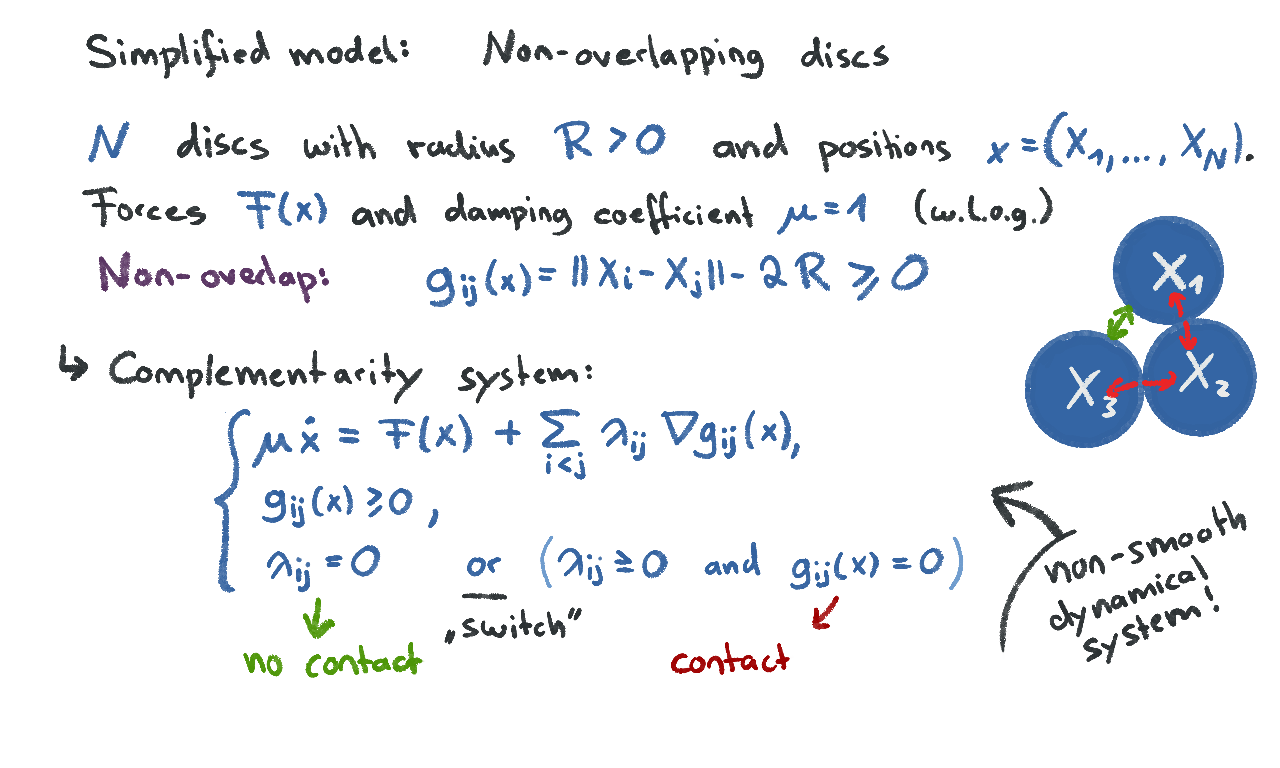 Simplified model: Non-overlapping discs
N discs with radius R > 0 and positions x = (X₁, ..., X_N).
Forces F(x) and damping coefficient μ = 1 (w.l.o.g.)
Non-overlap: g_ij(x) = ||X_i - X_j|| - 2R ⩾ 0
X₁
X₃
X₂
↳ Complementarity system:
μẋ = F(x) + ∑_{i<j} λ_ij ∇g_ij(x),
g_ij(x) ⩾ 0,
λ_ij = 0 or (λ_ij ≥ 0 and g_ij(x) = 0)
„switch"
no contact
contact
non-smooth
dynamical
system!